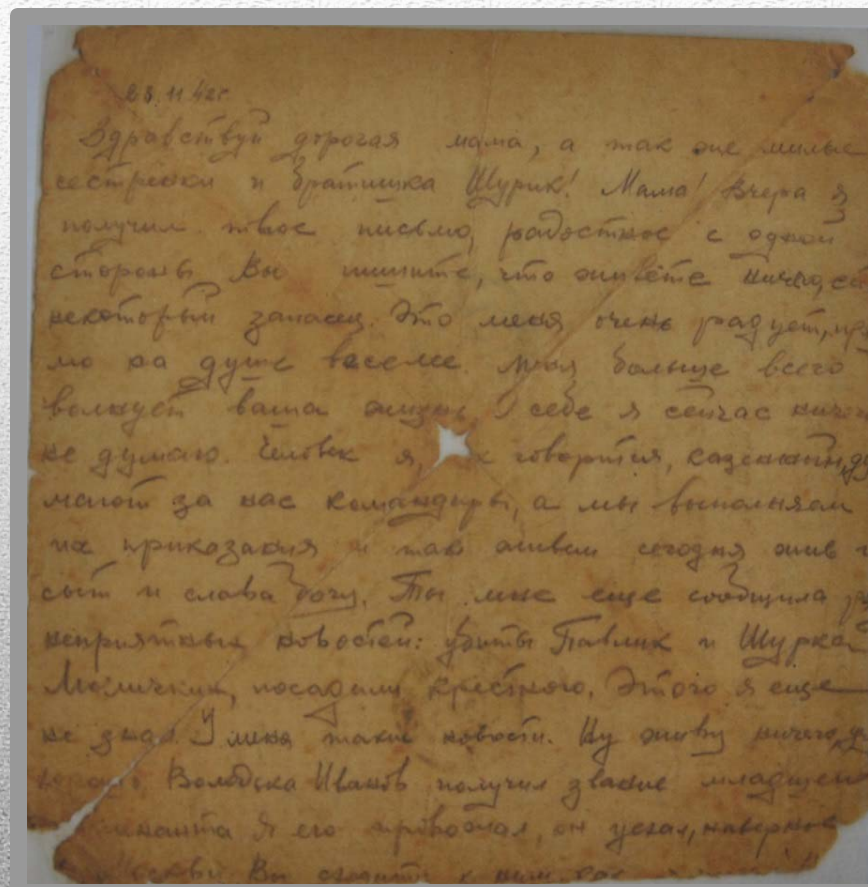 28.11.42г.
Здравствуй дорогая мама, а так же милые
сестренки и братишка Шурик! Мама! Вчера я
получил твое письмо, радостное с одной
стороны Вы пишите, что живёте ничего, ес
некоторый запасец. Это меня очень радует, пр
мо на душе веселе. Меня больше всего
волнует ваша жизнь, О себе я сейчас ничего
не думаю. Человек я, к говорится, казенный, ду
мают за нас командиры, а мы выполняем
их приказания и так живем сегодня жив и
сыт и слава богу. Ты мне еще сообщила
неприятных новостей: убиты Павлик и Шурка
посадили крестного. Этого я еще
не знал У меня такие новости. Ну живу ничего,
Володька Иванов получил звание младшего
я его провожал, он уехал, наверное
Вы сходите к ним